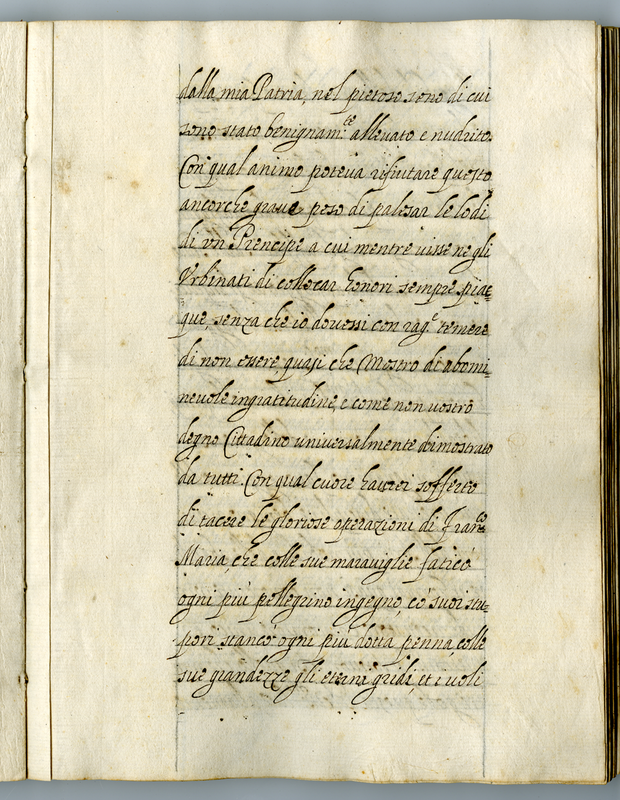 dalla mia Patria, nel pietoso seno di cui
sono stato benignam.te allevato e nudrito.
Con qual animo poteva rifiutare questo
ancorche grave peso di palesar le lodi
di vn Prencipe a cui mentre uisse ne gli
Vrbinati di collocar honori sempre piac=
que, senza che io douessi con rag.e temere
di non essere, quasi che Mostro di abomi=
neuole ingratitudine, e come non uostro
degno Cittadino uniuersalmente dimostrato
da tutti. Con qual cuore haurei sofferto
di tacere le gloriose operazioni di Fran.co
Maria, che colle sue marauiglie faticò
ogni più pellegrino ingegno, co' suoi stu=
pori stancò ogni più dotta penna, colle
sue grandezze gli eterni gridi, et i uoli